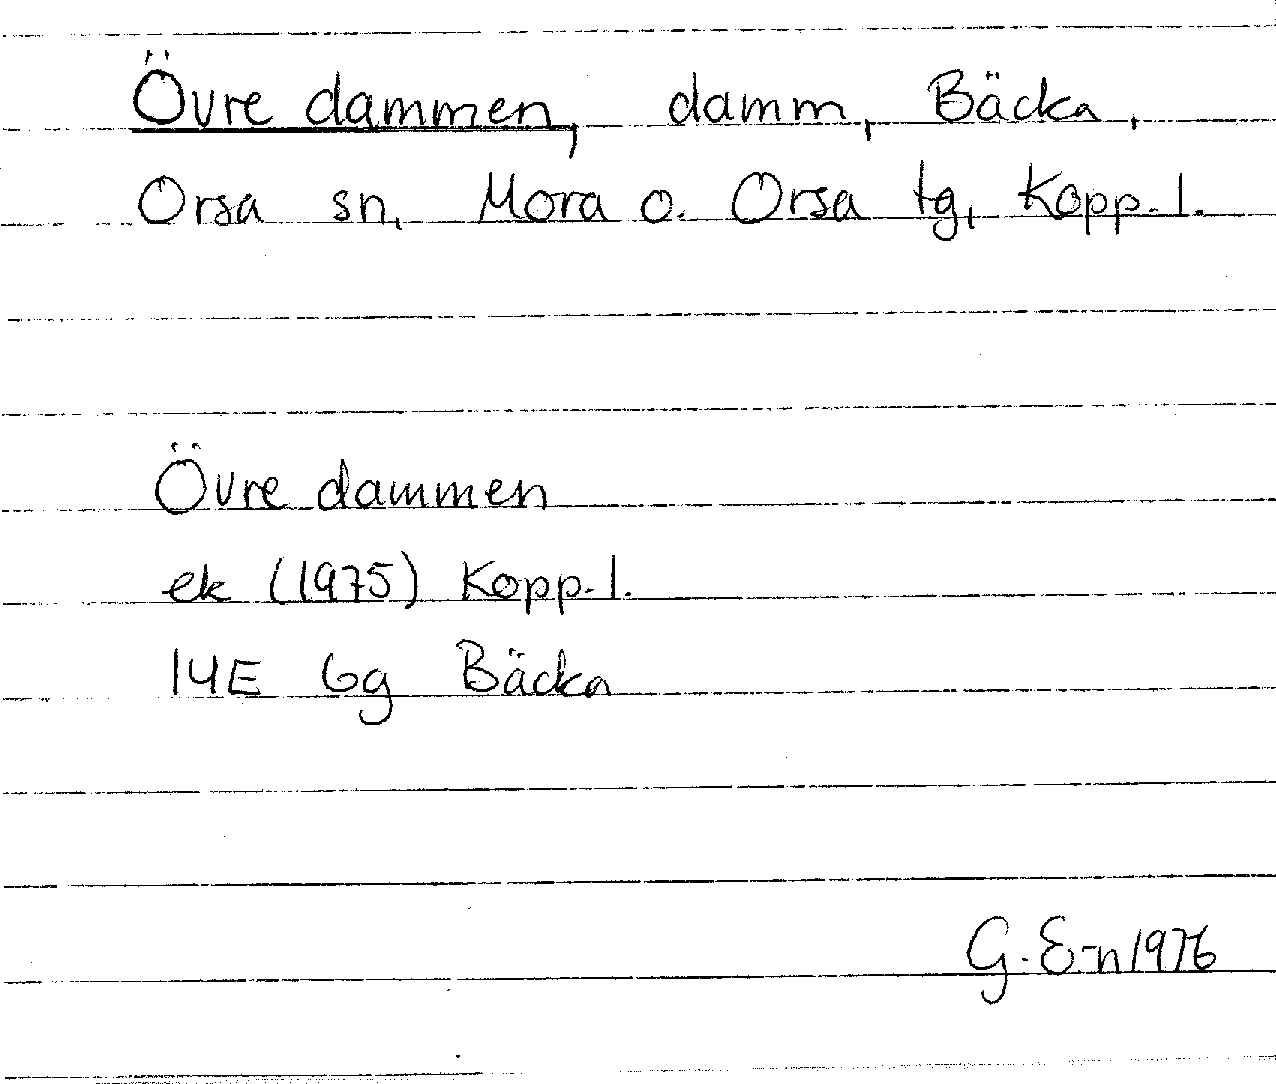 Övre dammen, damm, Bäcka,
Orsa sn, Mora o. Orsa tg, Kopp. l.
Övre dammen
ek (1975) Kopp. l.
14E 6g Bäcka
G. E-n 1976